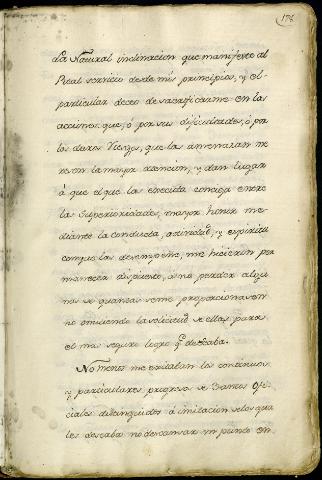 176
La Natural inclinacion que manifeste al
Real servicio desde mis principios, y el
particular deceo de sacrificarme en las
acciones que, ó por sus dificultades, ó por
los demas Riesgos, que las
ron la mayor atencion, y dan lugar
á que el que las execuda consiga entre
las Superioridades, mayor honor me
diante la conducta, actividad, y espiritu
conque las desempeñe, me hicieron per
manecer dispuesto, á no perder algu
nas de quantas seme proporcionaron
no omitiendo la solicitud de ellas para
el mas seguro logro q.e deseaba.
No menos me exitaban los continuos
y particulares progresos de tantos Ofi
ciales distinguidos á imitacion delos qua
les deseaba no descansar un punto en